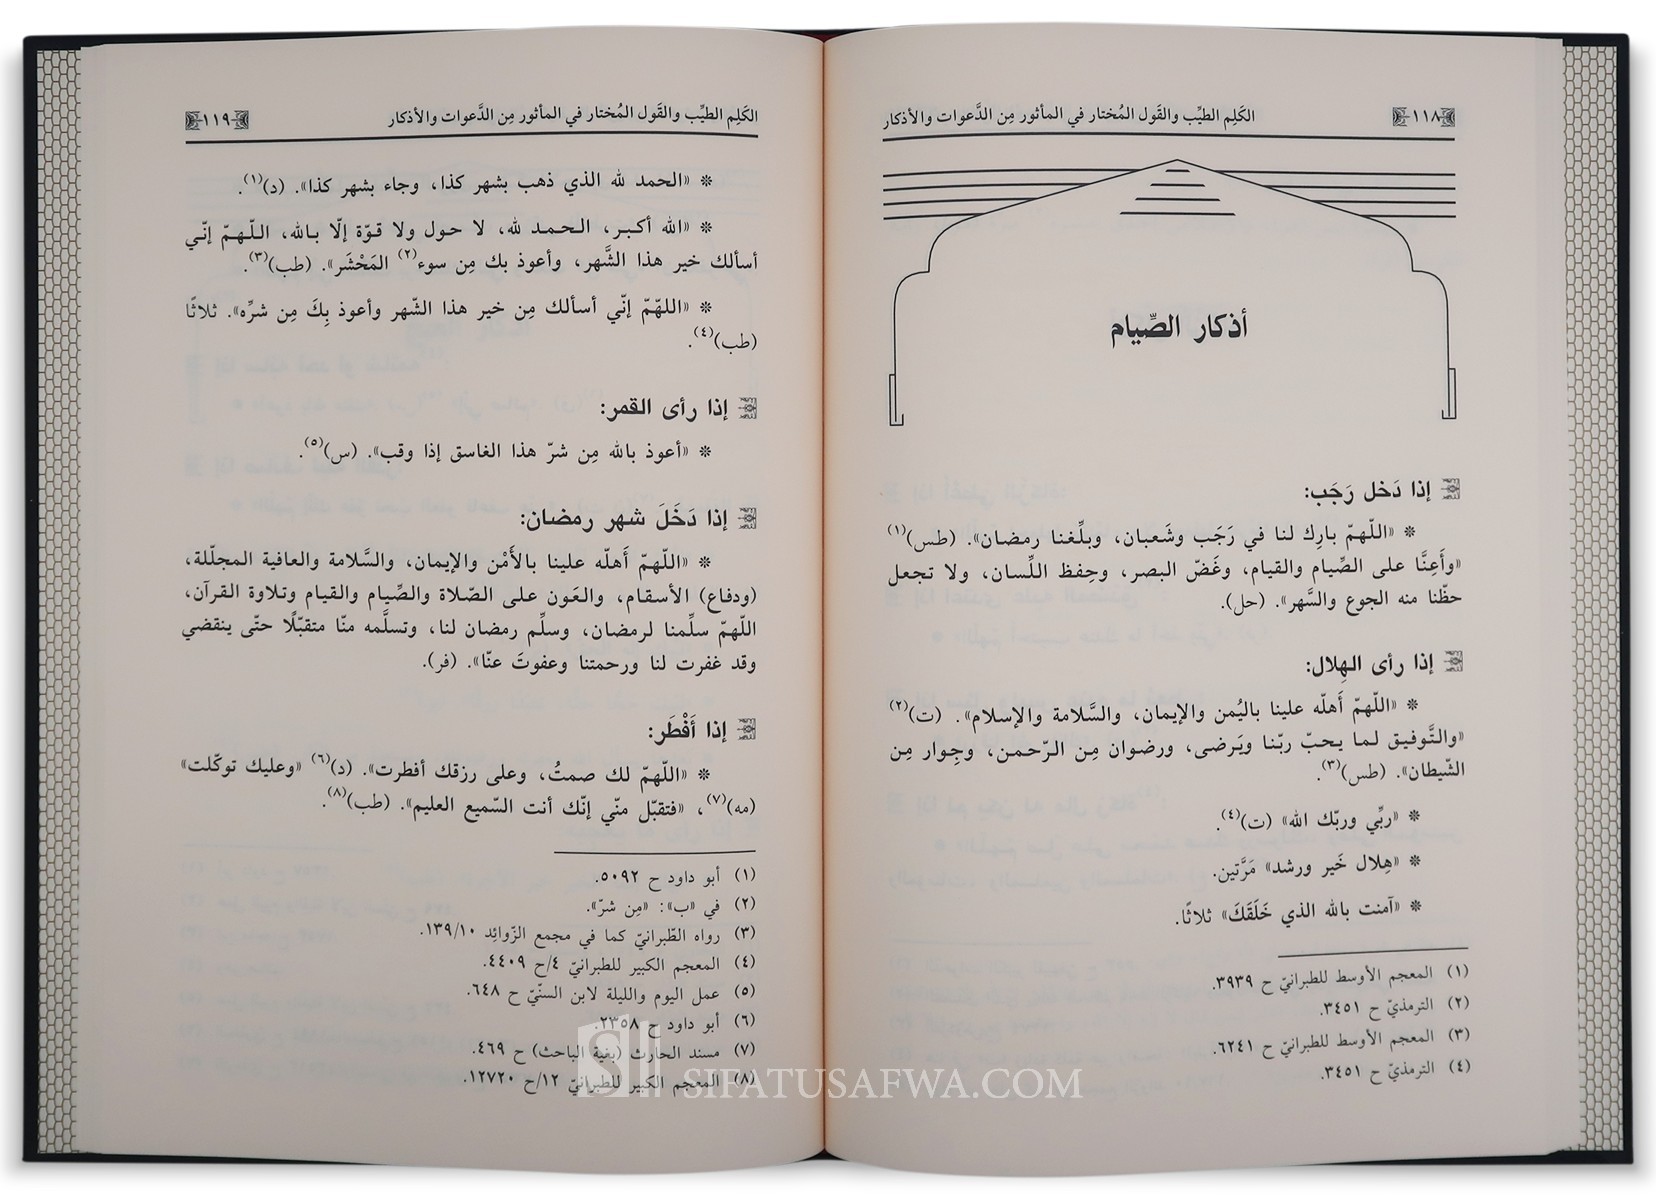 ١١٨ الكَلِم الطيِّب والقَول المُختار في المأثور مِن الدَّعوات والأذكار
أذكار الصِّيام
إذا دَخل رَجَب:
* «اللّهمّ بارِك لنا في رَجَب وشَعبان، وبلِّغنا رمضان». (طس)(١)
«وأَعِنَّا على الصِّيام والقيام، وغَضّ البصر، وحِفظ اللِّسان، ولا تجعل
حظّنا منه الجوع والسَّهر». (حل).
إذا رأى الهِلال:
* «اللّهمّ أَهلّه علينا باليُمن والإيمان، والسَّلامة والإسلام». (ت)(٢)
«والتَّوفيق لما يحبّ ربّنا ويَرضى، ورضوان مِن الرّحمن، وجِوار مِن
الشّيطان». (طس)(٣).
* «ربِّي وربّك الله» (ت)(٤).
* «هِلال خَير ورشد» مَرَّتين.
* «آمنت بالله الذي خَلَقَكَ» ثلاثًا.
(١) المعجم الأوسط للطبرانيّ ح ٣٩٣٩.
(٢) الترمذيّ ح ٣٤٥١.
(٣) المعجم الأوسط للطبرانيّ ح ٦٢٤١.
(٤) الترمذيّ ح ٣٤٥١.
الكَلِم الطيِّب والقَول المُختار في المأثور مِن الدَّعوات والأذكار ١١٩
* «الحمد لله الذي ذهب بشهر كذا، وجاء بشهر كذا». (د)(١).
* «الله أكبر، الحمد لله، لا حول ولا قوّة إلّا بالله، اللّهمّ إنّي
أسألك خير هذا الشَّهر، وأعوذ بك مِن سوء(٢) المَحْشَر». (طب)(٣).
* «اللّهمّ إنّي أسألك مِن خير هذا الشّهر وأعوذ بِكَ مِن شرِّه». ثلاثًا
(طب)(٤).
إذا رأى القمر:
* «أعوذ بالله مِن شرّ هذا الغاسق إذا وقب». (س)(٥).
إذا دَخَلَ شهر رمضان:
* «اللّهمّ أَهلّه علينا بالأَمْن والإيمان، والسَّلامة والعافية المجلّلة،
(ودفاع) الأسقام، والعَون على الصّلاة والصِّيام والقيام وتلاوة القرآن،
اللّهمّ سلِّمنا لرمضان، وسلِّم رمضان لنا، وتسلَّمه منّا متقبّلًا حتّى ينقضي
وقد غفرت لنا ورحمتنا وعفوتَ عنّا». (فر).
إذا أَفْطَر:
* «اللّهمّ لك صمتُ، وعلى رزقك أفطرت». (د)(٦) «وعليك توكّلت»
(مه)(٧)، «فتقبّل منّي إنّك أنت السّميع العليم». (طب)(٨).
(١) أبو داود ح ٥٠٩٢.
(٢) في «ب»: «مِن شرّ».
(٣) رواه الطّبرانيّ كما في مجمع الزّوائد ١٣٩/١٠.
(٤) المعجم الكبير للطبرانيّ ٤/ح ٤٤٠٩.
(٥) عمل اليوم والليلة لابن السنّيّ ح ٦٤٨.
(٦) أبو داود ح ٢٣٥٨.
(٧) مسند الحارث (بغية الباحث) ح ٤٦٩.
(٨) المعجم الكبير للطبرانيّ ١٢/ح ١٢٧٢٠.
SIFATUSAFWA.COM